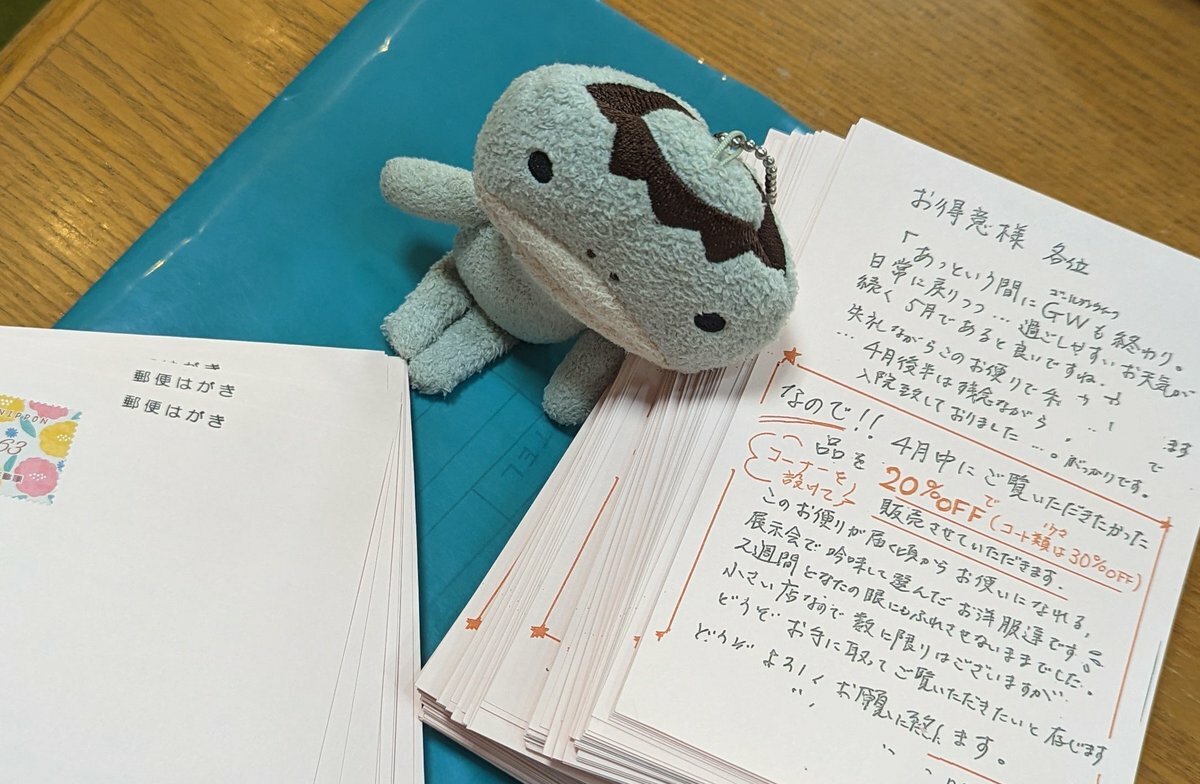 郵便はがき
郵便はがき
NIPPON
63
お得意様 各位
「あっという間にGWも終わり。
ゴールデンウィーク
日常に戻りつつ…過ごしやすいお天気が
続く5月であると良いですね。
失礼ながらこのお便りで
…4月後半は残念ながら
入院致しておりました…。がっかりです。
なので!! 4月中にご覧いただきたかった
品を 20%OFFで(コート類は30%OFF)
コーナーを
設けて
販売させていただきます。
このお便りが届く頃から お使いになれる,
展示会で吟味して選んだ お洋服達です
2週間 どなたの眼にもふれさせないままでした。
小さい店なので数に限りはございますが
どうぞ お手に取ってご覧いただきたいと存じます
どうぞ よろしく お願い致します。